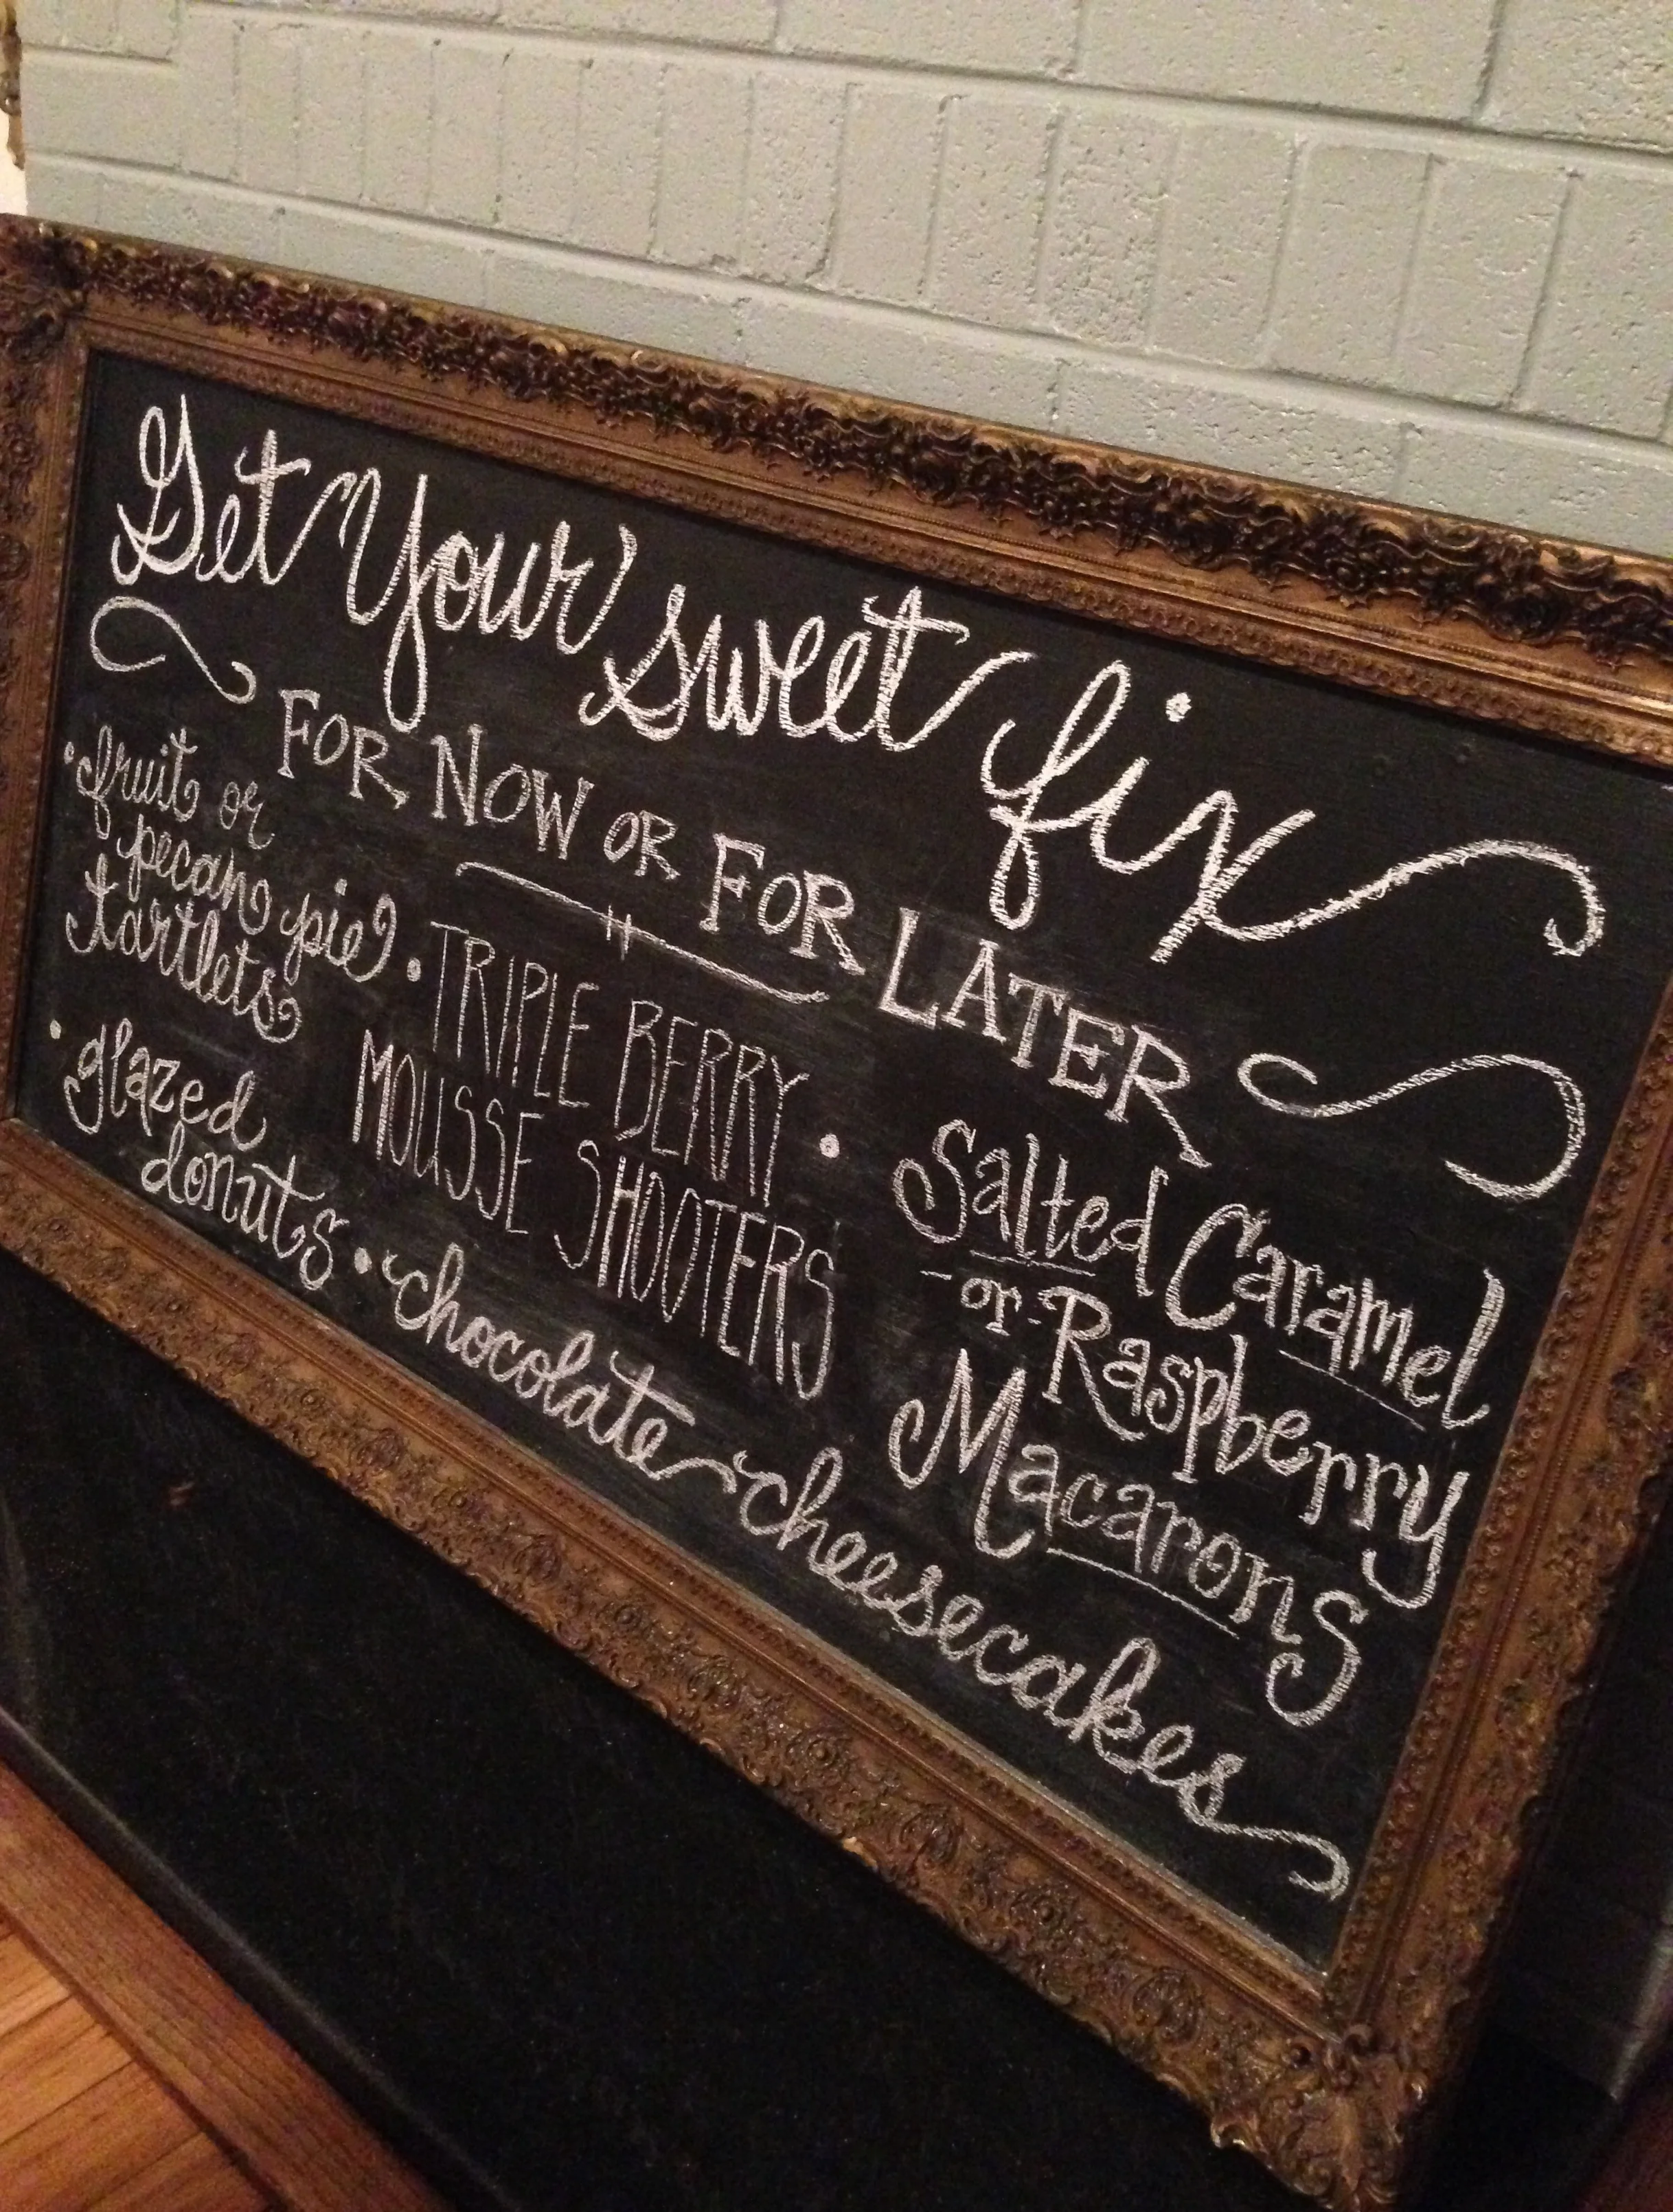 Get Your sweet fix
FOR NOW OR FOR LATER
• fruit or
pecan pie
tartlets
• TRIPLE BERRY
MOUSSE SHOOTERS
• Salted Caramel
-or- Raspberry
Macarons
• glazed
donuts
• chocolate cheesecakes